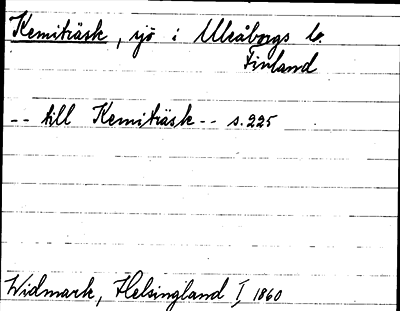 Kemiträsk, sjö i Uleåborgs l.
Finland
-- till Kemiträsk -- s. 225
Widmark, Helsingland I, 1860